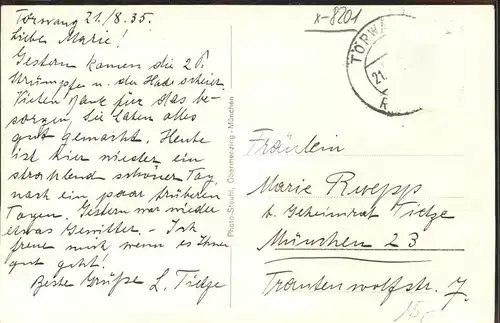 Törwang 21./8.35.
Liebe Marie!
Gestern kamen die 2 P.
Strümpfe u. der
Vielen Dank für das be-
sorgen, Sie haben alles
gut gemacht. Heute
ist hier wieder ein
strahlend schöner Tag,
nach ein paar trüberen
Tagen. Gestern war wieder
etwas Gewitter. - Ich
freue mich wenn es Ihnen
gut geht!
Beste Grüße L. Tietze
Photo-Steuhl, Obermenzing-München
x-8201
TÖRWA
21.
Fräulein
Marie Ruepp
b. Geheimrat Tietze
München 23
Trautenwolfstr. 7
15,-